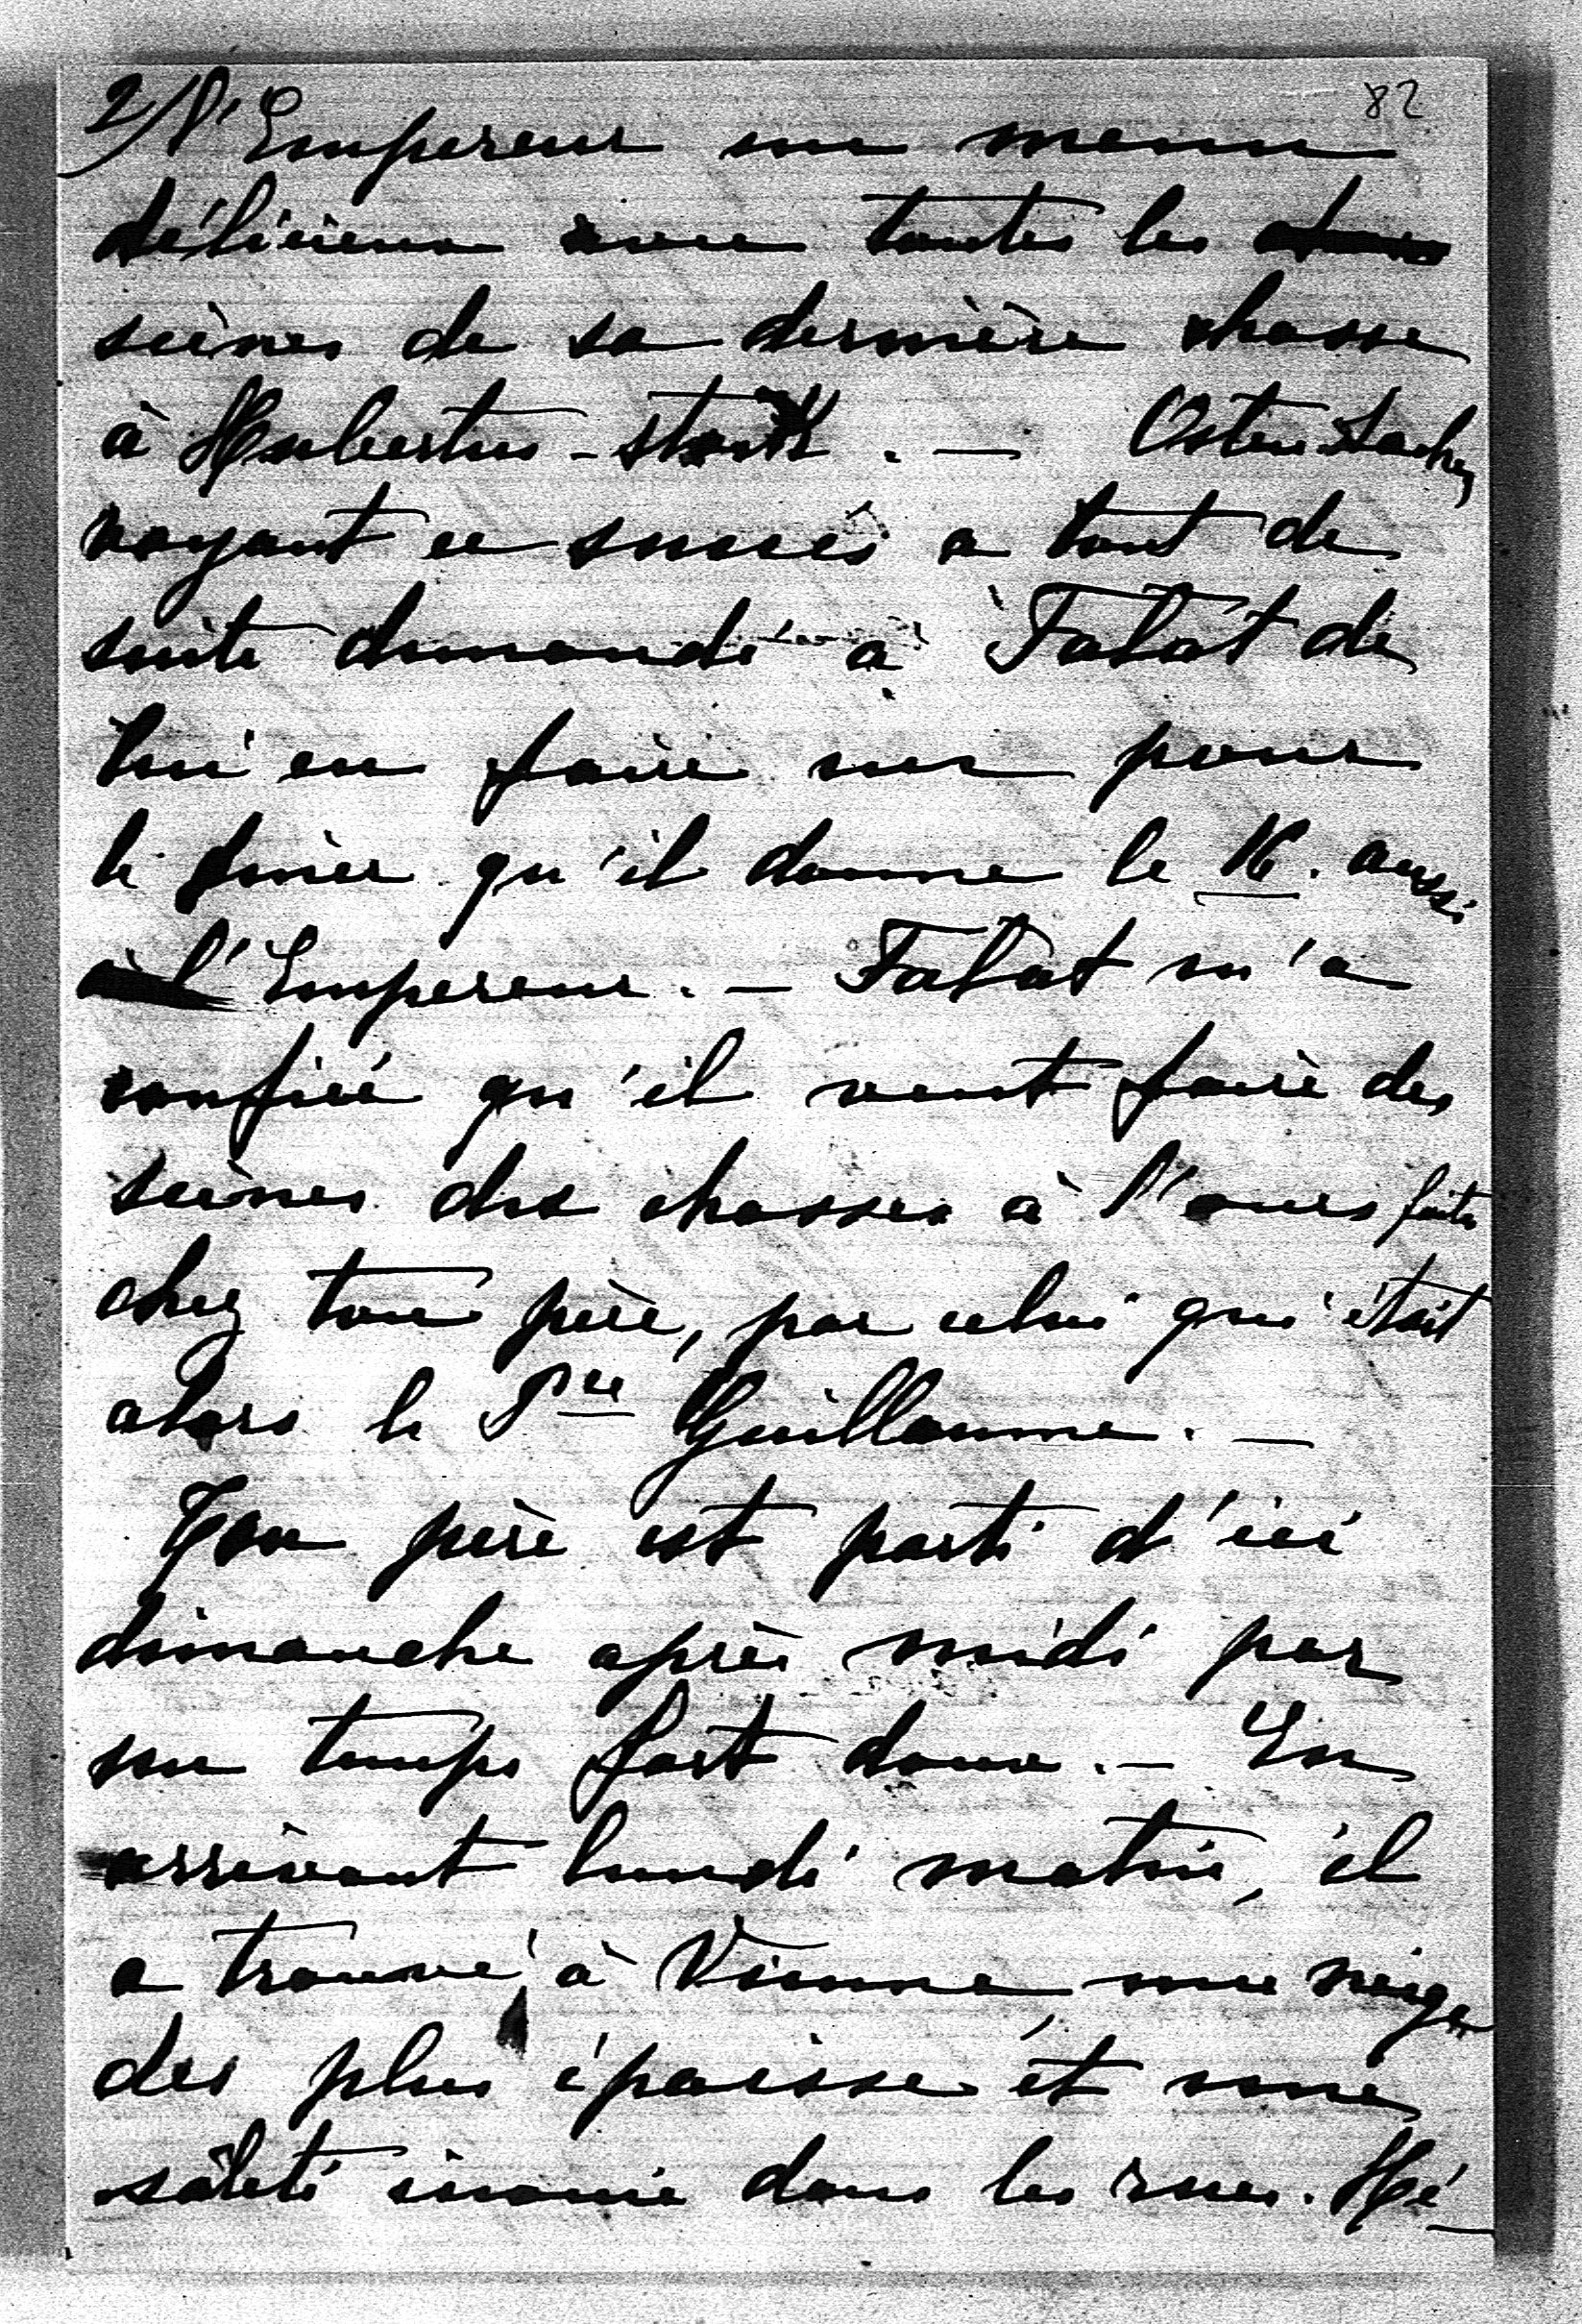 2/ l'Empereur un menu 82
délicieux avec toutes les
scènes de sa dernière chasse
à Hubertus-stock. — Osten-Sacken
voyant ce succès a tout de
suite demandé à Fałat de
lui en faire un pour
le dîner qu'il donne le 16. aussi
à l'Empereur. — Fałat m'a
confié qu'il veut faire des
scènes des chasses à l'ours faites
chez ton père, par celui qui était
alors le Pce Guillaume. —
Ton père est parti d'ici
dimanche après midi par
un temps fort doux. — En
arrivant lundi matin, il
a trouvé à Vienne, une neige
des plus épaisse et une
saleté inouïe dans les rues. Hé-